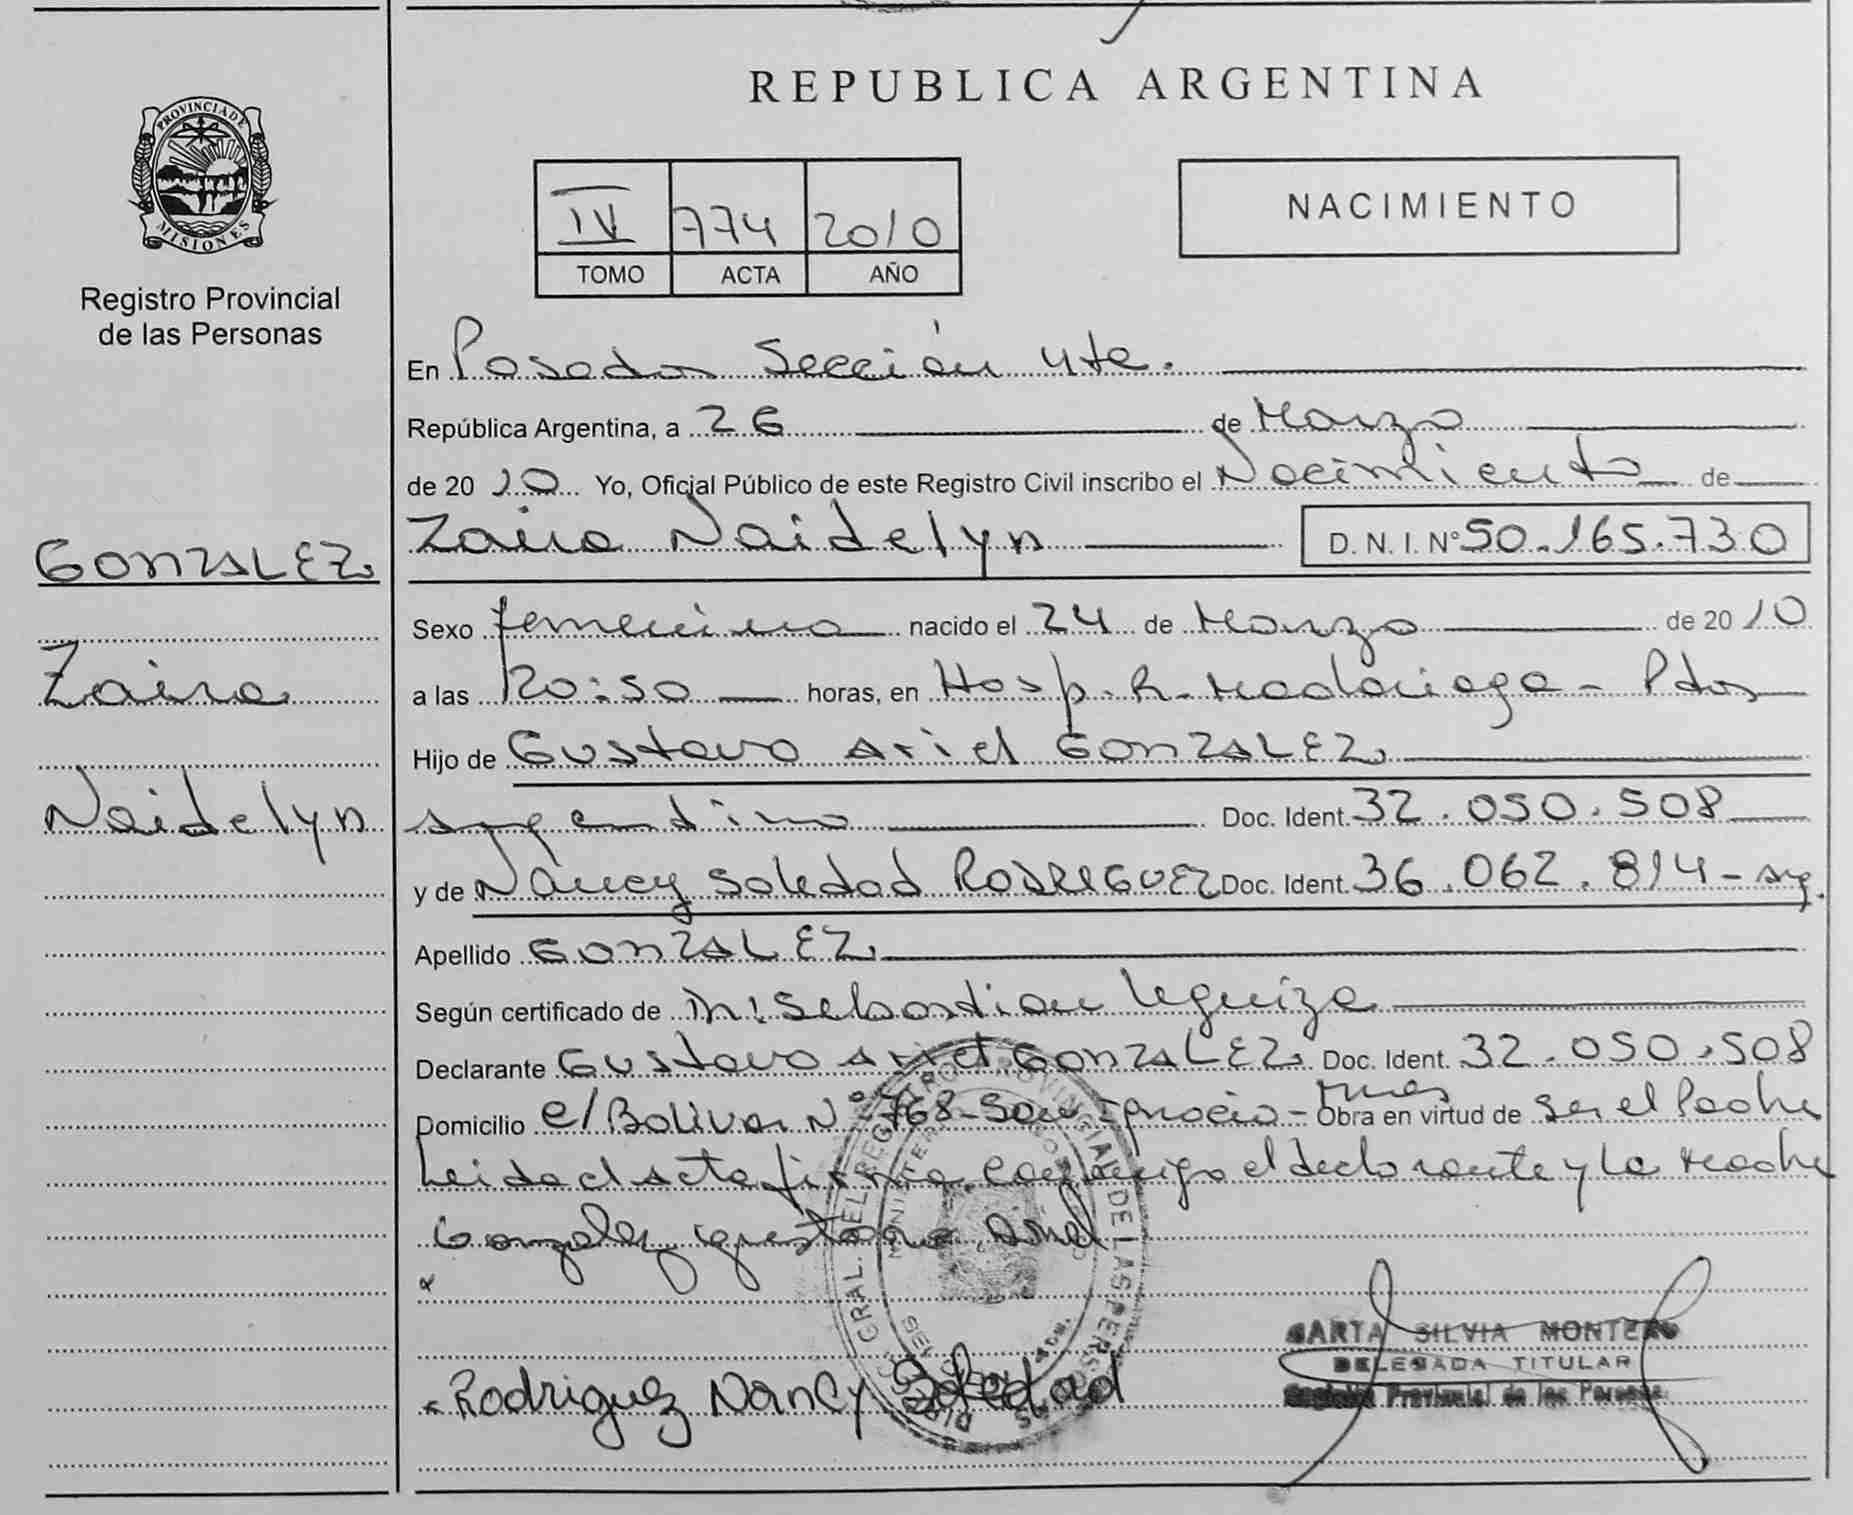 REPUBLICA ARGENTINA
PROVINCIA DE
MISIONES
Registro Provincial
de las Personas
IV 774 2010
TOMO ACTA AÑO
NACIMIENTO
En Posadas Sección 4ta.
República Argentina, a 26 de Marzo
de 2010 Yo, Oficial Público de este Registro Civil inscribo el Nacimiento de
GONZALEZ
Zaira
Naidelyn
Zaira Naidelyn D. N. I. N° 50.165.730
Sexo femenino nacido el 24 de Marzo de 2010
a las 20:50 horas, en Hosp. R. Madariaga - Pdas
Hijo de Gustavo Ariel GONZALEZ
argentino Doc. Ident. 32.050.508
y de Nancy Soledad RODRIGUEZ Doc. Ident. 36.062.814 - arg.
Apellido GONZALEZ
Según certificado de Dr. Sebastian Leguiza
Declarante Gustavo Ariel GONZALEZ Doc. Ident. 32.050.508
Domicilio c/ Bolivar N° 768 - San Ignacio - Mnes Obra en virtud de ser el Padre
Leida el acta firma conmigo el declarante y la Madre
Gonzalez Gustavo Ariel
Rodriguez Nancy Soledad
SILVIA MONTERO
DELEGADA TITULAR
Provincial de las Personas
GRAL. DEL REGISTRO PROVINCIAL DE LAS PERSONAS